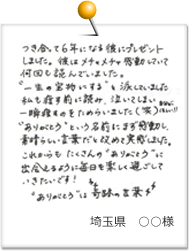 つき合って6年になる彼にプレゼント
しました。彼はメチャメチャ感動していて
何回も読んでいました。
"一生の宝物にする"と涙していました
私も渡す前に読み、泣いてしまい
一瞬渡すのをためらいました(笑)
"ありがとう"という名前にまず感動し
素晴らしい言葉だと改めて実感しました。
これからもたくさんの"ありがとう"に
出会えるように毎日を楽しく過ごして
いきたいです!
"ありがとう"は奇跡の言葉
埼玉県 ○○様